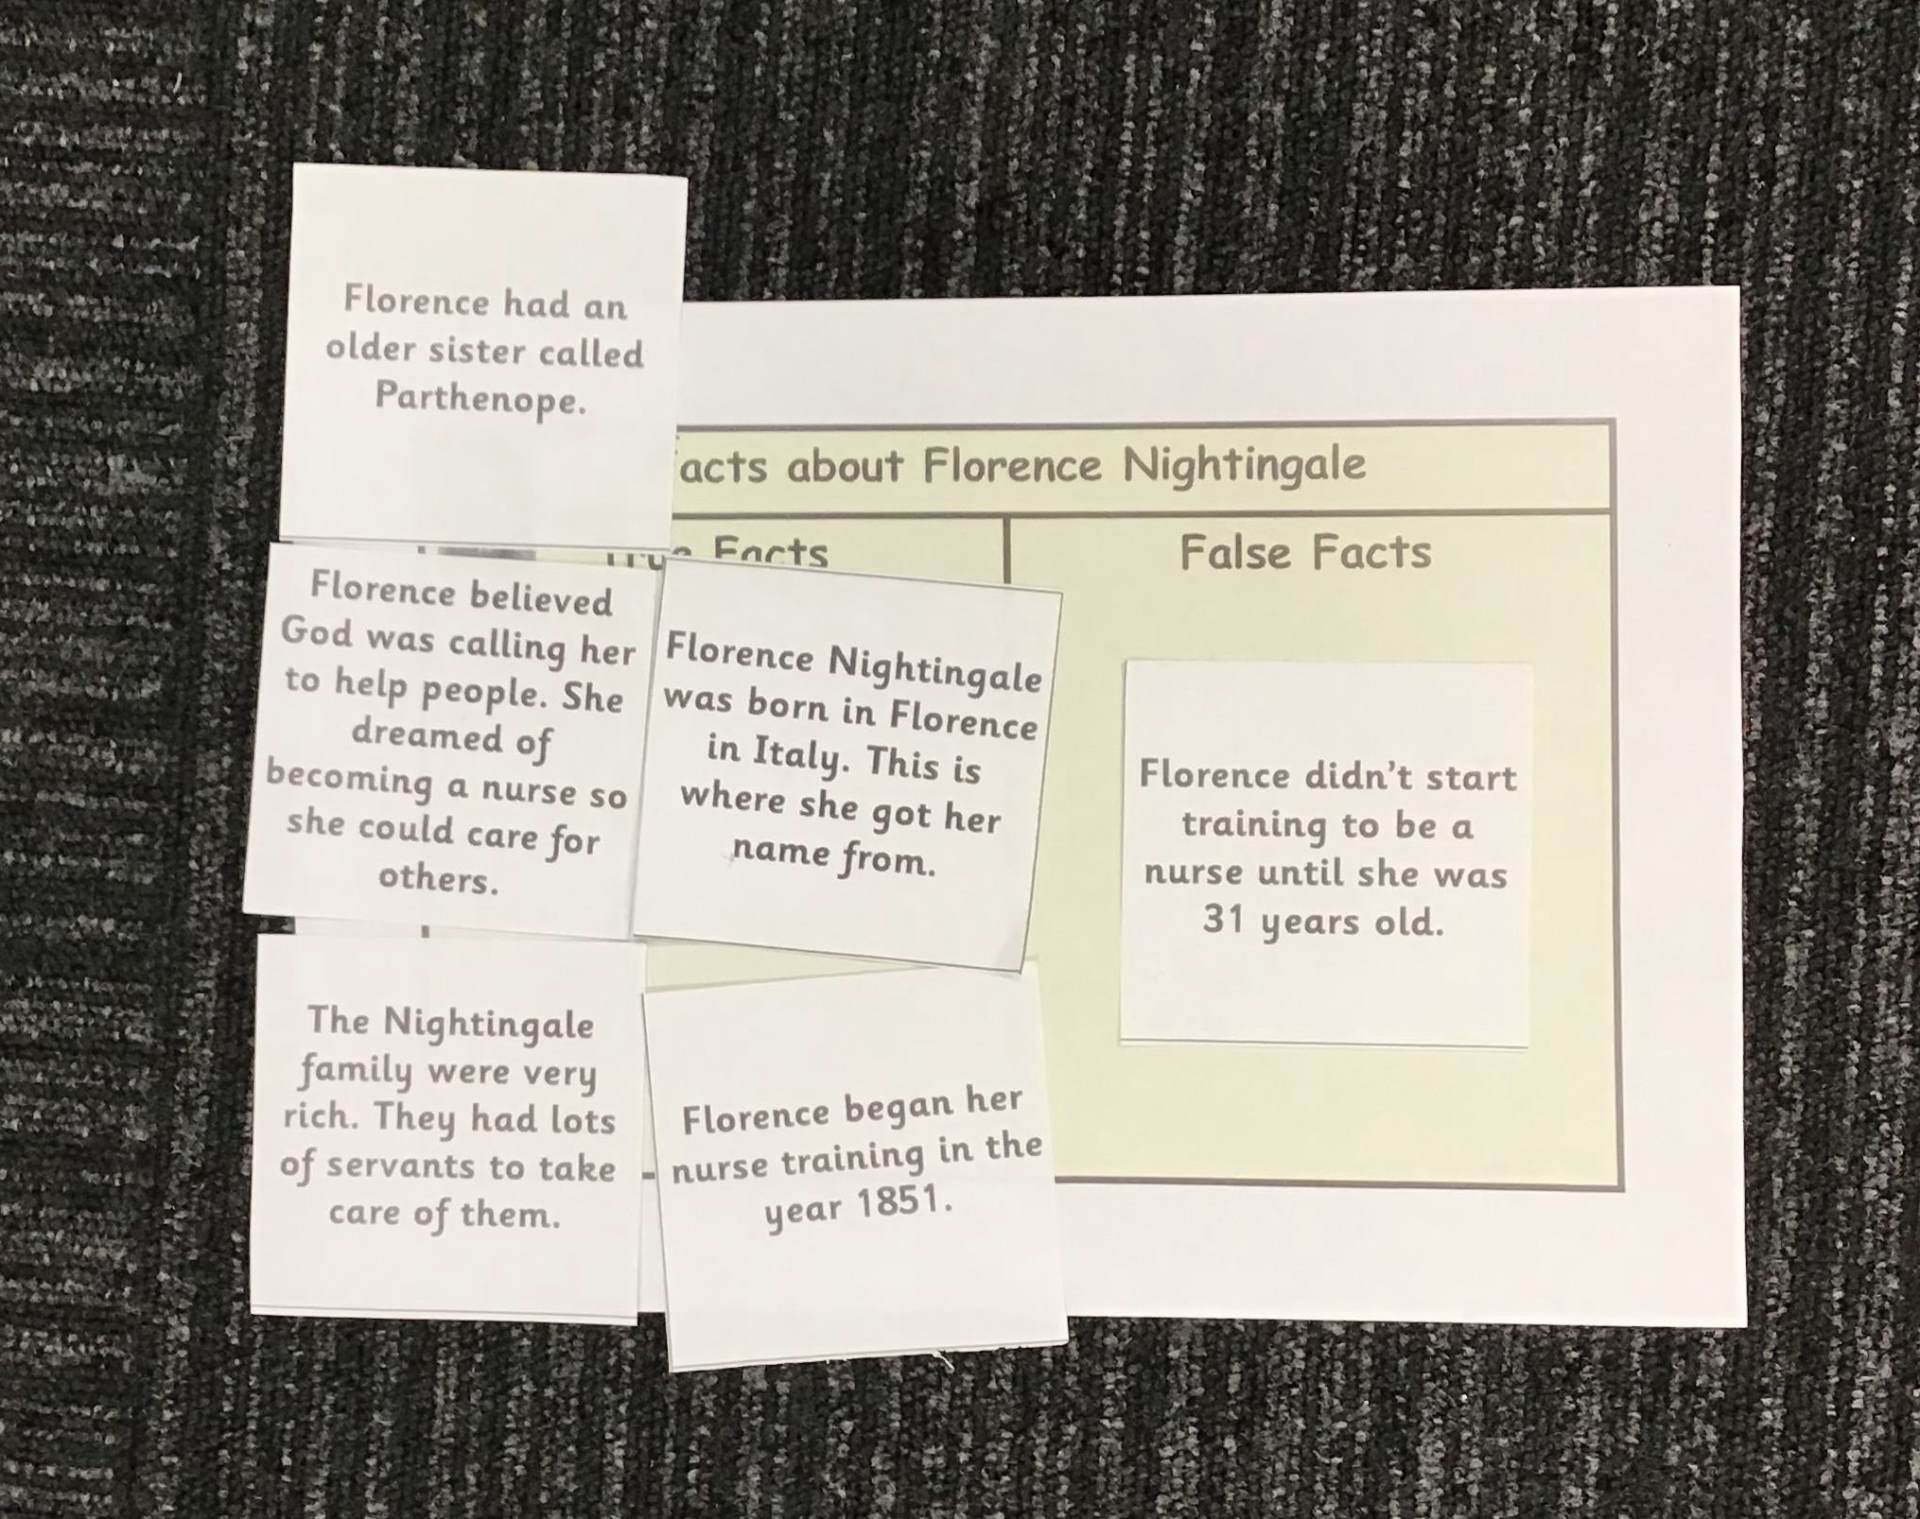 Florence had an
older sister called
Parthenope.
acts about Florence Nightingale
True Facts
False Facts
Florence believed
God was calling her
to help people. She
dreamed of
becoming a nurse so
she could care for
others.
Florence Nightingale
was born in Florence
in Italy. This is
where she got her
name from.
Florence didn't start
training to be a
nurse until she was
31 years old.
The Nightingale
family were very
rich. They had lots
of servants to take
care of them.
Florence began her
nurse training in the
year 1851.